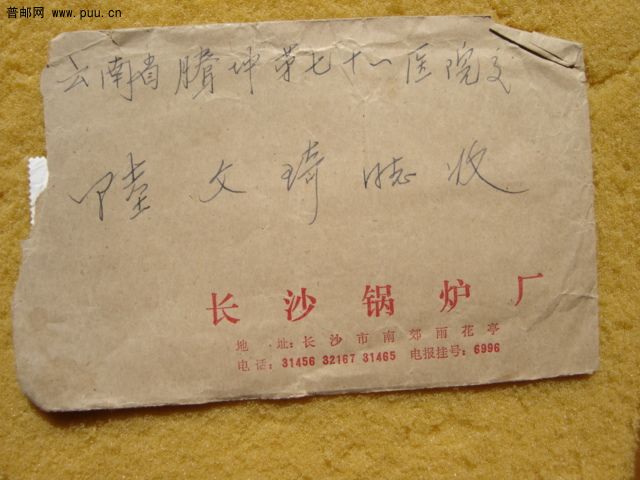 普邮网 www.puu.cn
云南省腾冲第七十一医院交
文琦 收
长沙锅炉厂
地 址:长沙市南郊雨花亭
电话:31456 32167 31465 电报挂号:6996